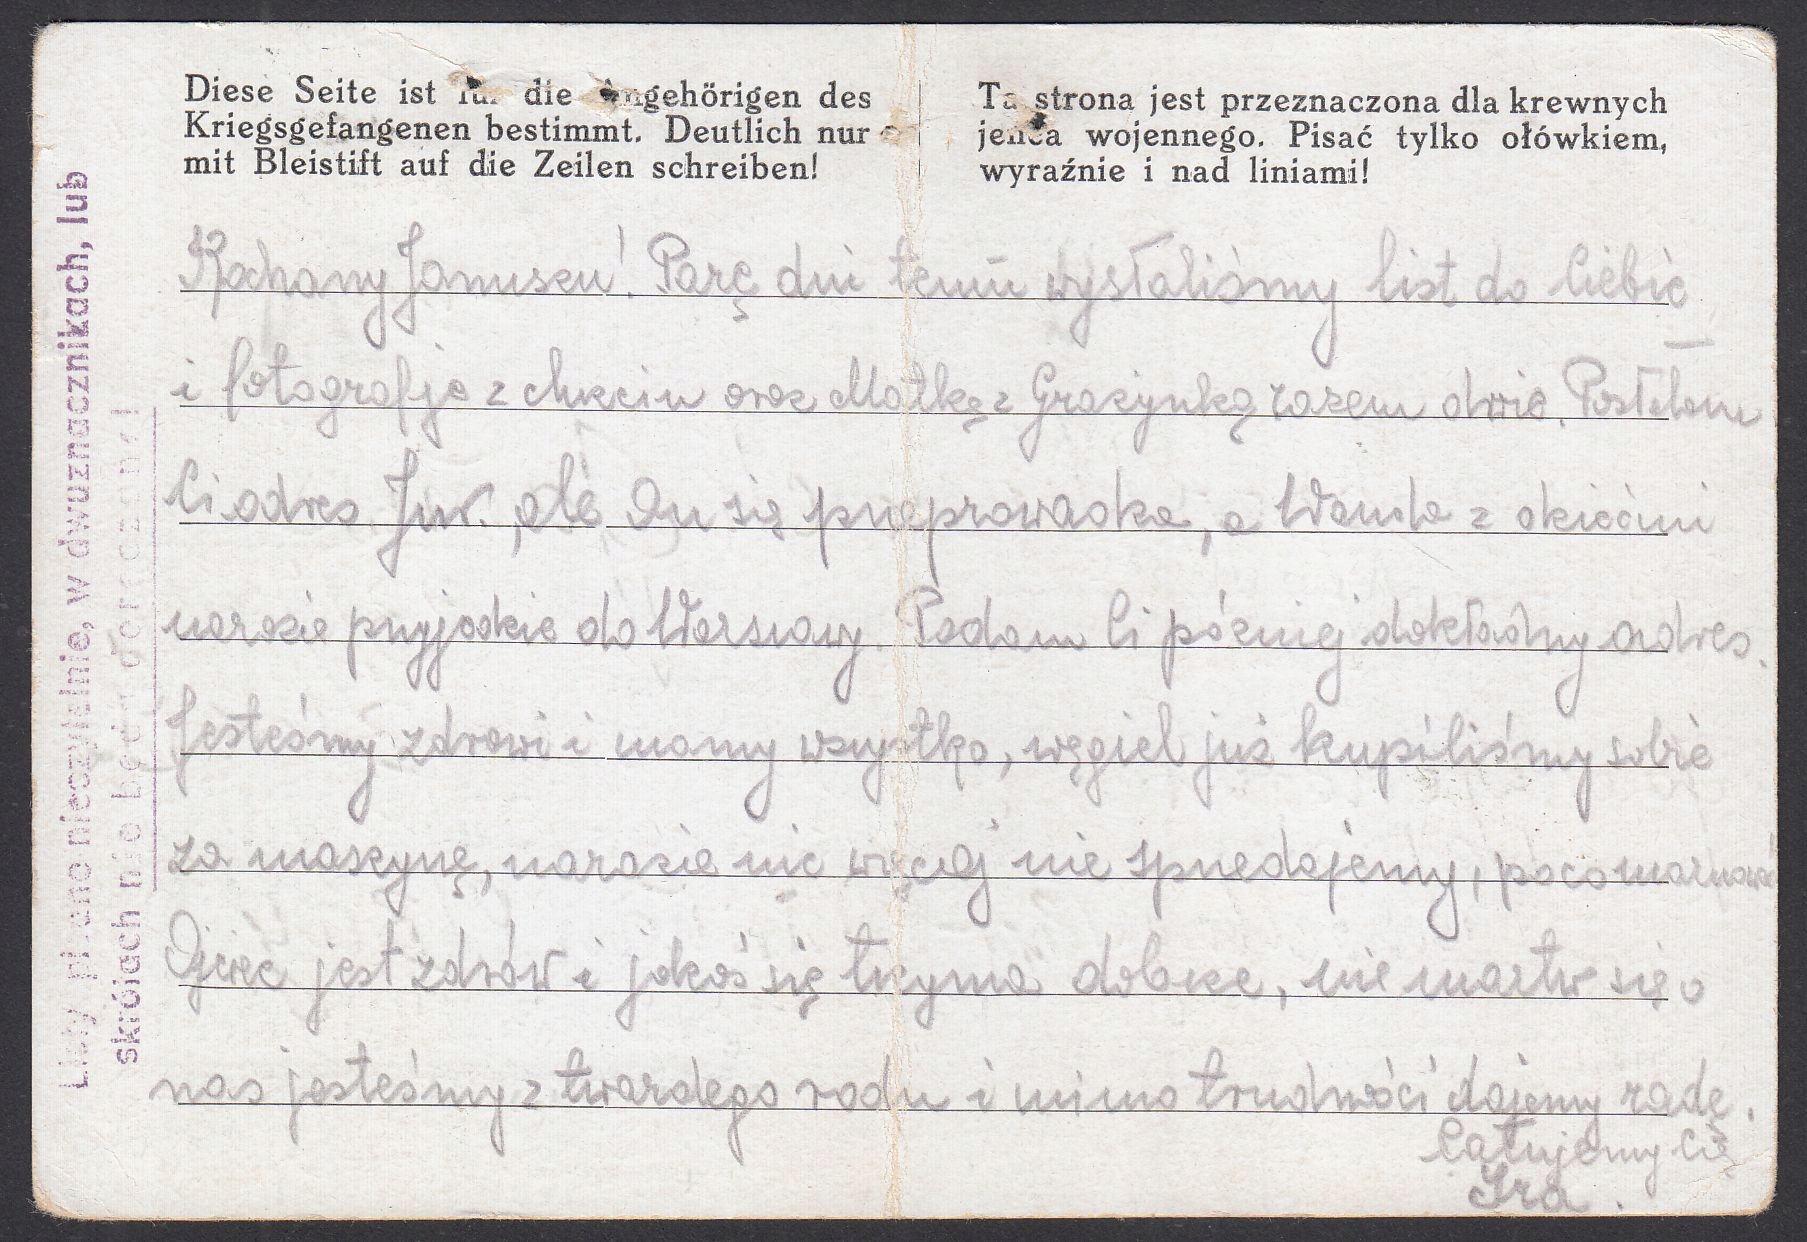 Diese Seite ist für die Angehörigen des
Kriegsgefangenen bestimmt. Deutlich nur
mit Bleistift auf die Zeilen schreiben!
Ta strona jest przeznaczona dla krewnych
jeńca wojennego. Pisać tylko ołówkiem,
wyraźnie i nad liniami!
Listy pisane nieczytelnie, w dwuznacznikach, lub
skrótach nie będą doręczane!
Kochany Januszu! Parę dni temu wysłaliśmy list do Ciebie
i fotografje z chrzcin oraz Matkę z Grażynką razem dwie. Posłałam
Ci adres Juw. ale On się przeprowadza, a Wanda z dziećmi
narazie przyjedzie do Warszawy. Podam Ci później dokładny adres.
Jesteśmy zdrowi i mamy wszystko, węgiel już kupiliśmy sobie
za maszynę, narazie nic więcej nie sprzedajemy, poco marnować
Ojciec jest zdrów i jakoś się trzyma dobrze, nie martw się o
nas jesteśmy z twardego rodu i mimo trudności dajemy radę.
Całujemy Cię
Ira.